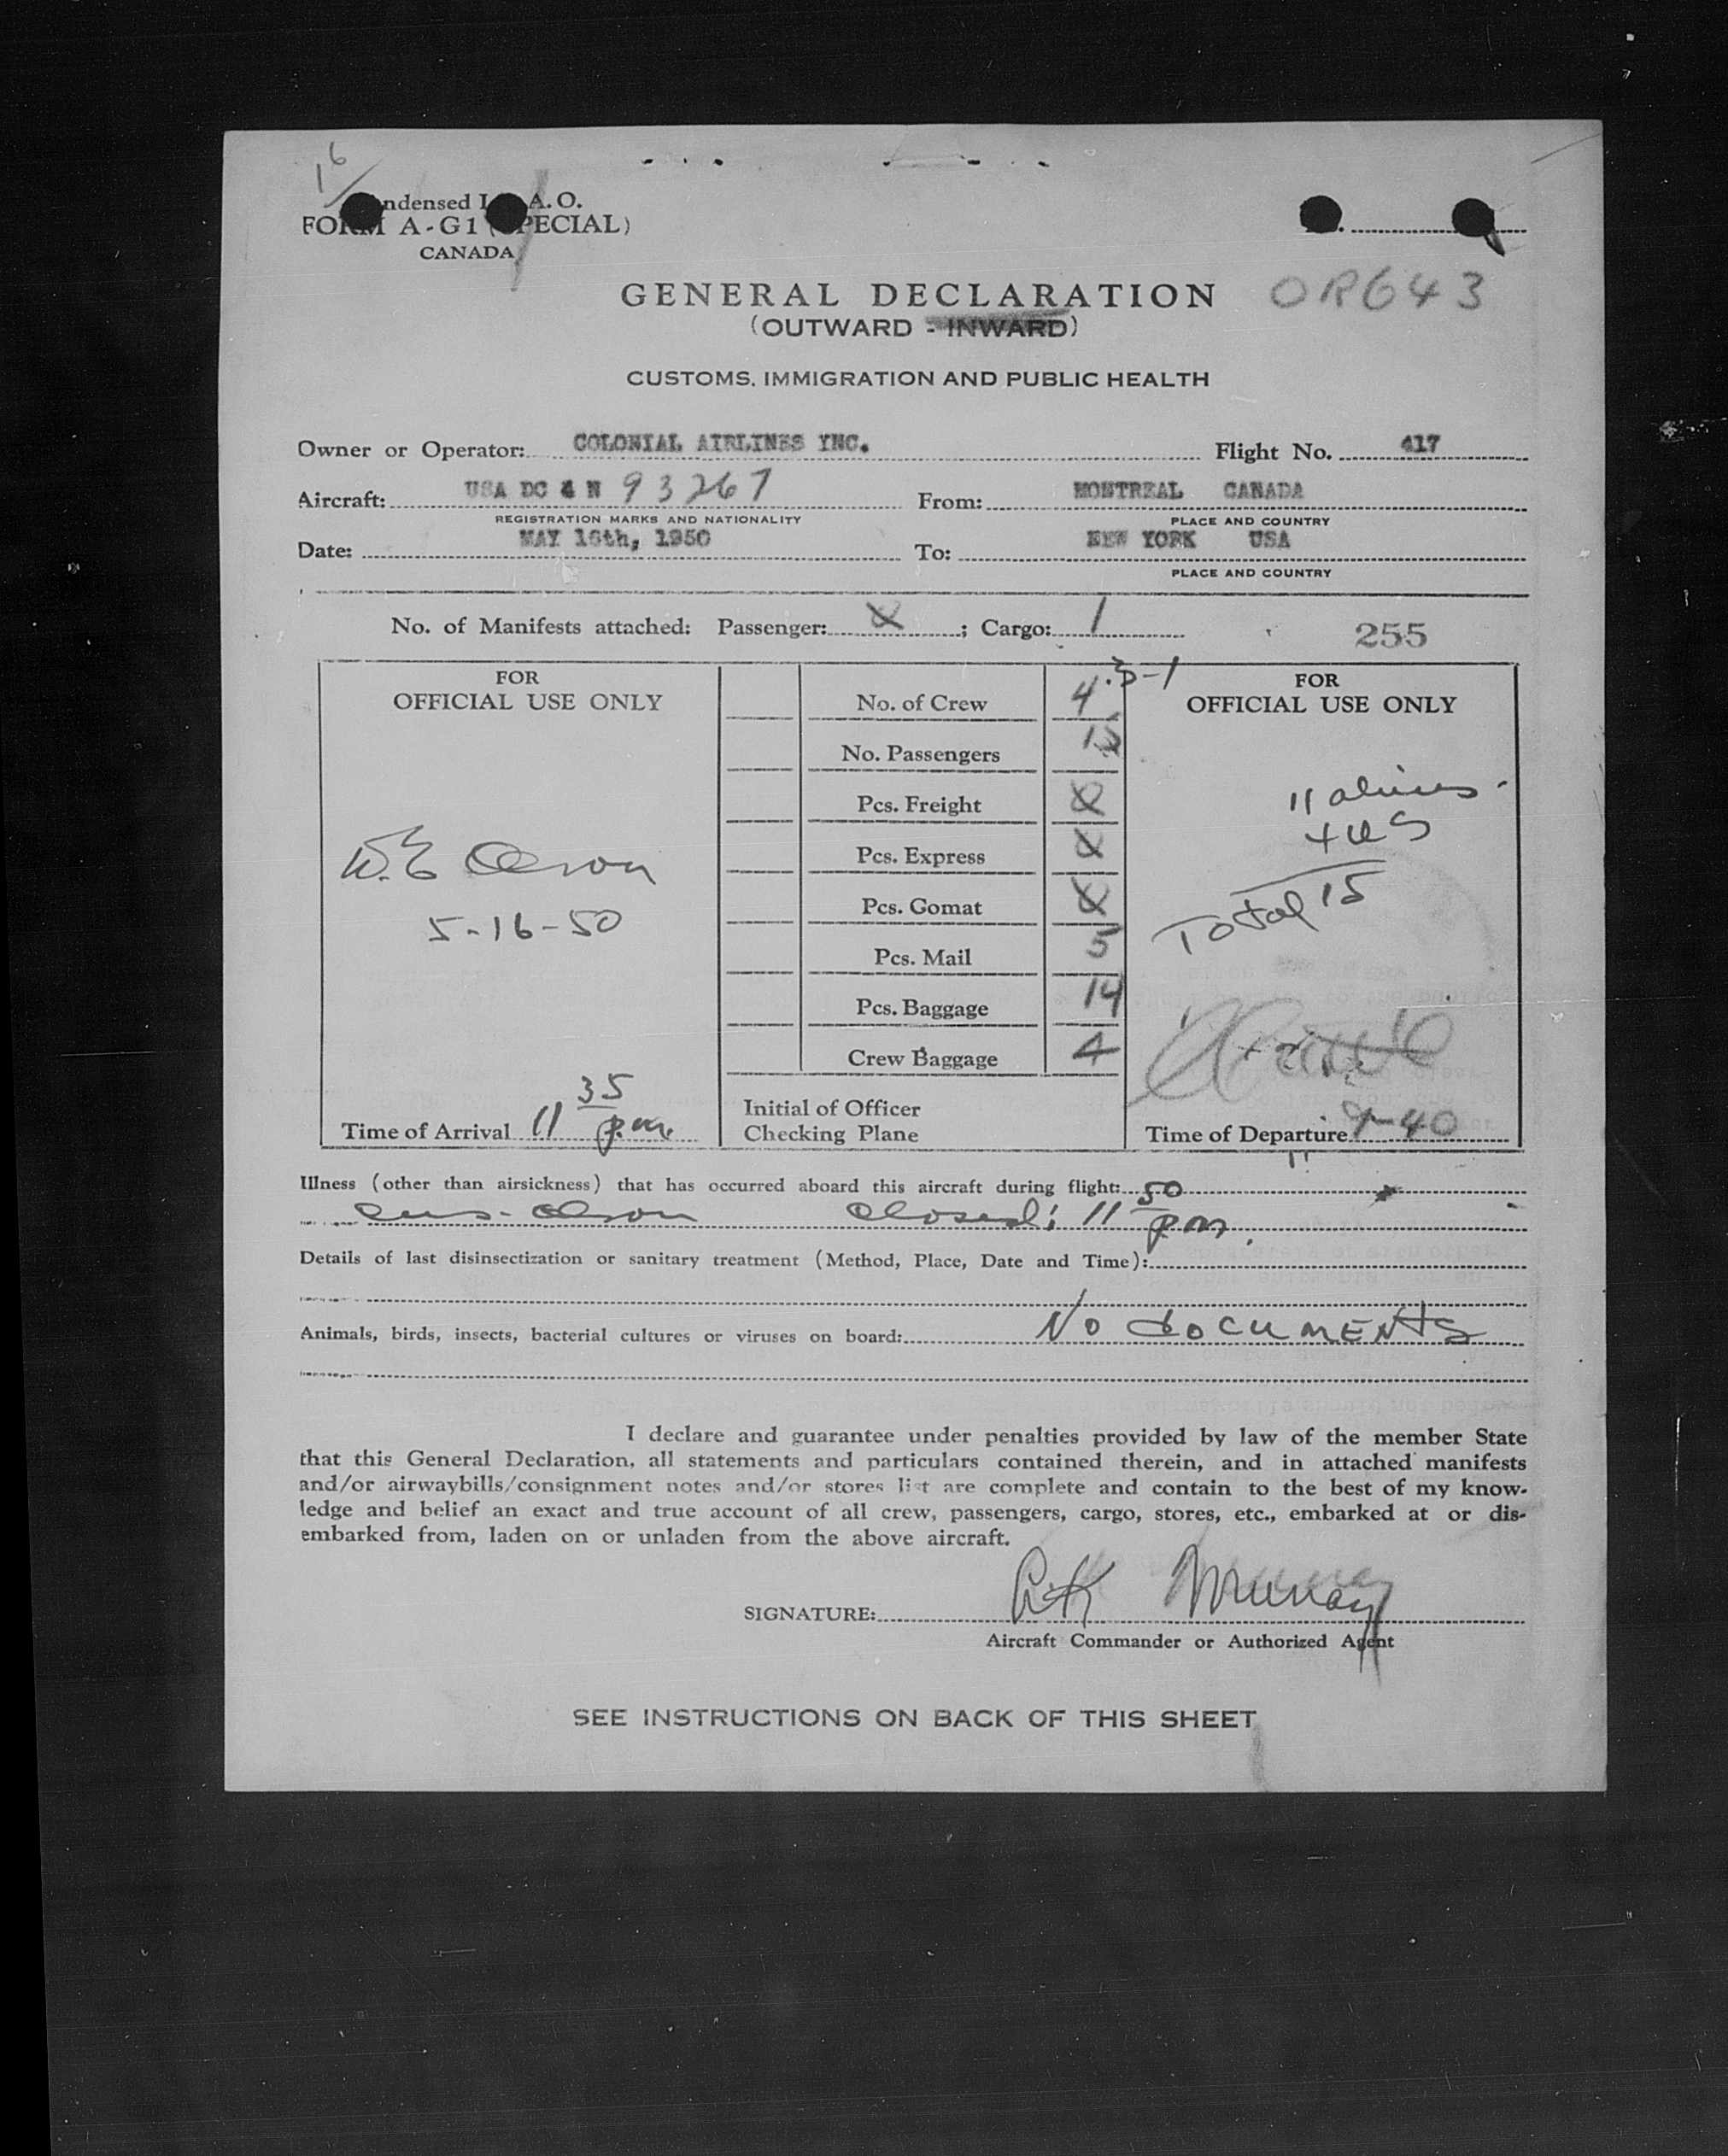 16
ndensed I A.O.
FORM A-G1 (SPECIAL)
CANADA
GENERAL DECLARATION OR643
(OUTWARD - INWARD)
CUSTOMS, IMMIGRATION AND PUBLIC HEALTH
Owner or Operator: COLONIAL AIRLINES INC. Flight No. 417
Aircraft: USA DC 4 N 93267 From: MONTREAL CANADA
REGISTRATION MARKS AND NATIONALITY PLACE AND COUNTRY
Date: MAY 16th, 1950 To: NEW YORK USA
PLACE AND COUNTRY
No. of Manifests attached: Passenger: X; Cargo: 1 255
FOR OFFICIAL USE ONLY
W.E. Olson
5-16-50
Time of Arrival 11 35 p.m.
No. of Crew 4 3-1
No. Passengers 15
Pcs. Freight X
Pcs. Express X
Pcs. Gomat X
Pcs. Mail 5
Pcs. Baggage 14
Crew Baggage 4
Initial of Officer
Checking Plane
FOR OFFICIAL USE ONLY
11 aliens
4 US
Total 15
Time of Departure 9-40
Illness (other than airsickness) that has occurred aboard this aircraft during flight:
Cus- Olson Closed; 11 50 pm.
Details of last disinsectization or sanitary treatment (Method, Place, Date and Time):
Animals, birds, insects, bacterial cultures or viruses on board: No documents
I declare and guarantee under penalties provided by law of the member State
that this General Declaration, all statements and particulars contained therein, and in attached manifests
and/or airwaybills/consignment notes and/or stores list are complete and contain to the best of my know-
ledge and belief an exact and true account of all crew, passengers, cargo, stores, etc., embarked at or dis-
embarked from, laden on or unladen from the above aircraft.
SIGNATURE: Murray
Aircraft Commander or Authorized Agent
SEE INSTRUCTIONS ON BACK OF THIS SHEET